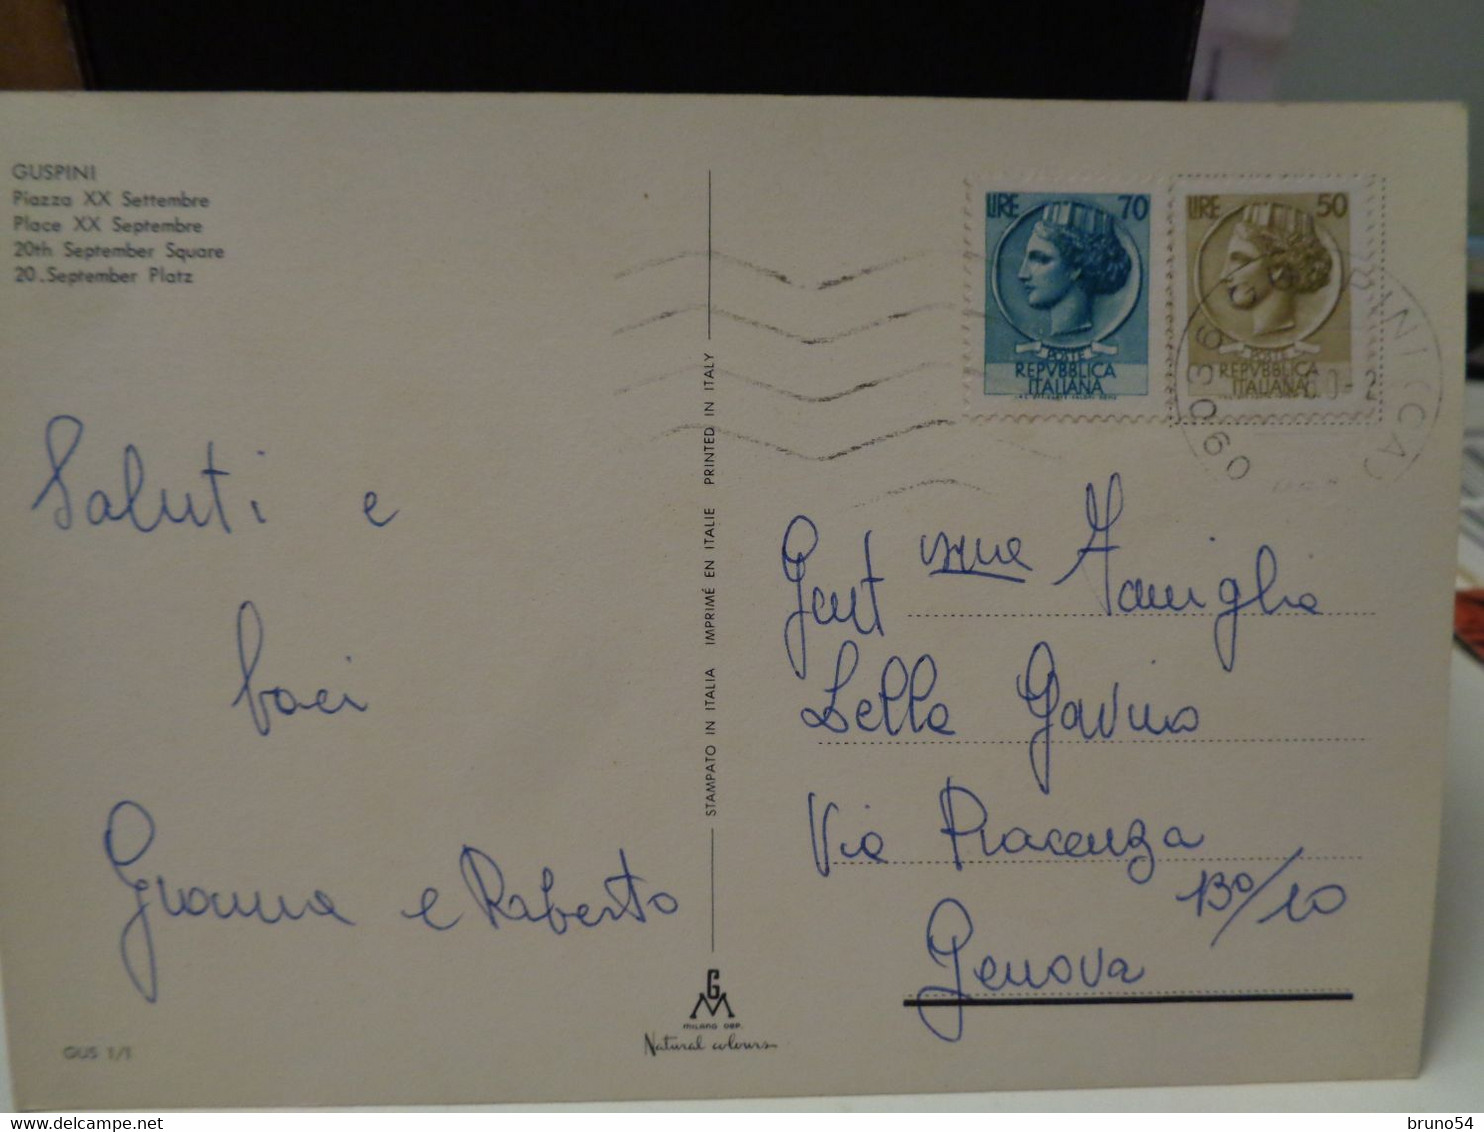 GUSPINI
Piazza XX Settembre
Place XX Septembre
20th September Square
20. September Platz
LIRE 70
POSTE
REPVBBLICA
ITALIANA
LIRE 50
POSTE
REPVBBLICA
ITALIANA
09036
(CA)
Saluti e
baci
Gianna e Roberto
STAMPATO IN ITALIA IMPRIMÉ EN ITALIE PRINTED IN ITALY
Gent issma Famiglia
Lella Gavino
Via Piacenza
13D/10
Genova
GM
MILANO DEP.
Natural colours
GUS 1/1
bruno54